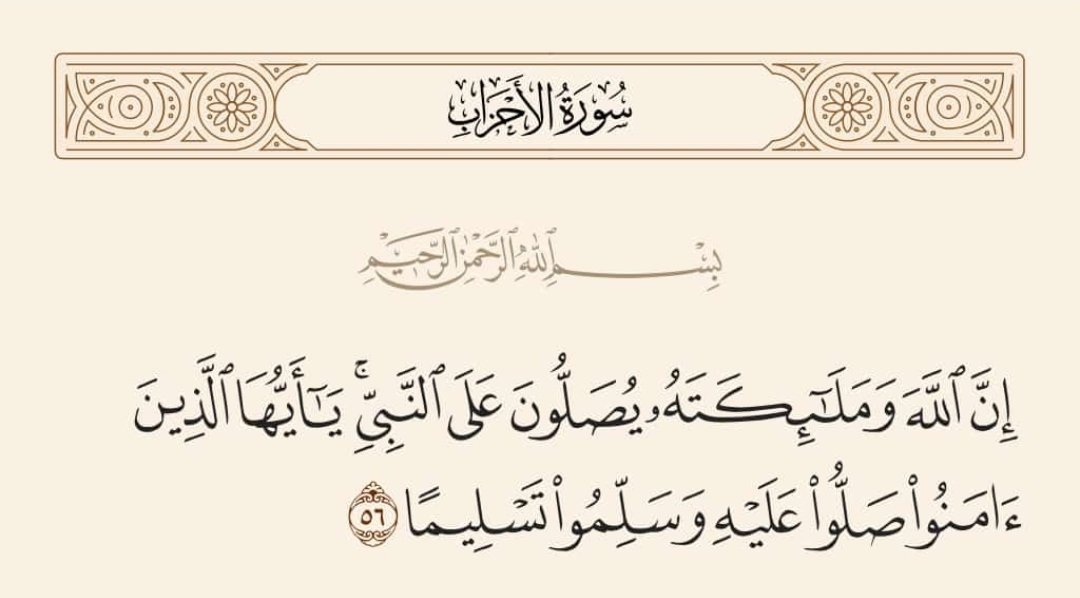 سُورَةُ الأَحْزَابِ
بِسْمِ ٱللَّهِ ٱلرَّحْمَٰنِ ٱلرَّحِيمِ
إِنَّ ٱللَّهَ وَمَلَٰٓئِكَتَهُۥ يُصَلُّونَ عَلَى ٱلنَّبِىِّ ۚ يَٰٓأَيُّهَا ٱلَّذِينَ
ءَامَنُوا۟ صَلُّوا۟ عَلَيْهِ وَسَلِّمُوا۟ تَسْلِيمًا ٥٦